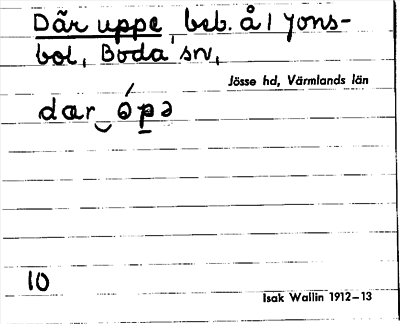 Där uppe, beb. å 1 Jons-
bol, Boda sn,
Jösse hd, Värmlands län
dar‿ópə
10
Isak Wallin 1912–13